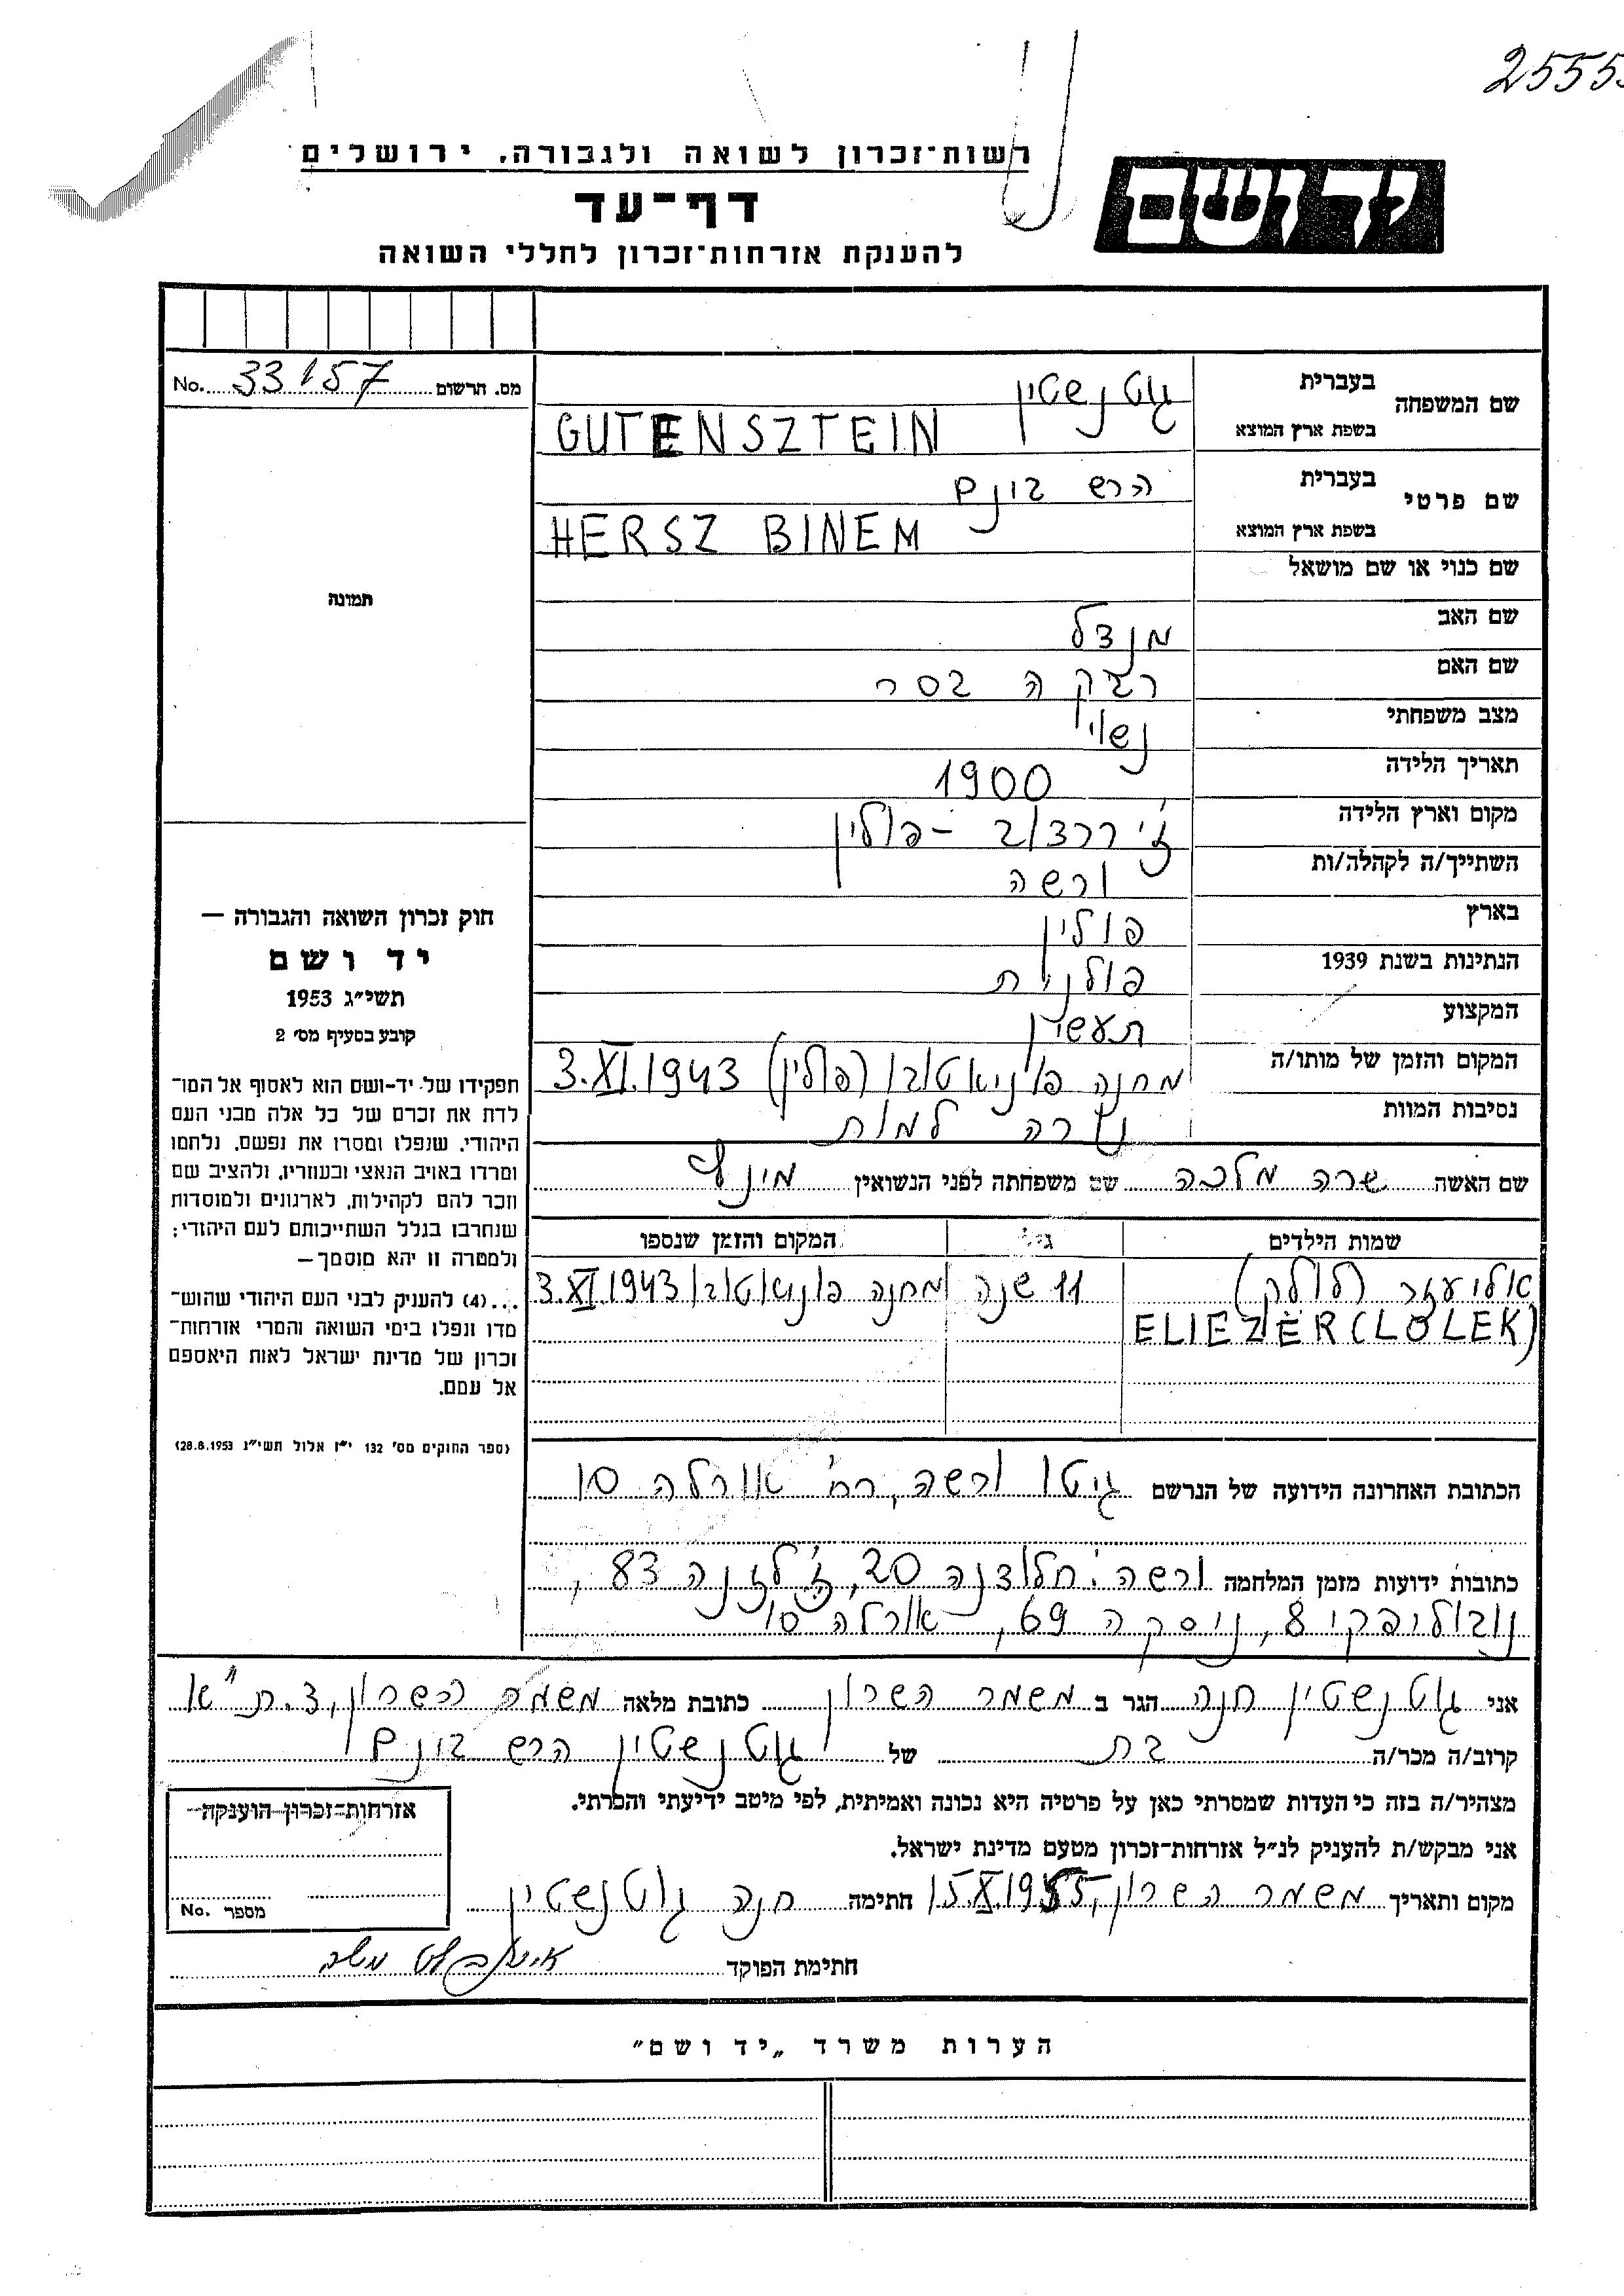 25553
רשות־זכרון לשואה ולגבורה, ירושלים
יד ושם
דף־עד
להענקת אזרחות־זכרון לחללי השואה
מס. הרשום 33157 No.
שם המשפחה בעברית גוטנשטיין
בשפת ארץ המוצא GUTENSZTEIN
שם פרטי בעברית הרש בונם
בשפת ארץ המוצא HERSZ BINEM
שם כנוי או שם מושאל
תמונה
שם האב מנדל
שם האם רבקה בסר
מצב משפחתי נשוי
תאריך הלידה 1900
מקום וארץ הלידה ז'יררדוב - פולין
השתייך/ה לקהלה/ות ורשה
בארץ פולין
הנתינות בשנת 1939 פולנית
המקצוע תעשין
המקום והזמן של מותו/ה מחנה פוניאטובו (פולין) 3.XI.1943
נסיבות המוות נורה למות
שם האשה שרה מלכה שם משפחתה לפני הנשואין
שמות הילדים גיל המקום והזמן שנספו
אליעזר (לולק) 11 שנה מחנה פוניאטובו 3.XI.1943
ELIEZER (LOLEK)
חוק זכרון השואה והגבורה —
יד ושם
תשי״ג 1953
קובע בסעיף מס׳ 2
תפקידו של יד-ושם הוא לאסוף אל המו־
לדת את זכרם של כל אלה מבני העם
היהודי, שנפלו ומסרו את נפשם, נלחמו
ומרדו באויב הנאצי ובעוזריו, ולהציב שם
וזכר להם לקהילות, לארגונים ולמוסדות
שנחרבו בגלל השתייכותם לעם היהודי;
ולמטרה זו יהא מוסמך—
...(4) להעניק לבני העם היהודי שהוש־
מדו ונפלו בימי השואה והמרי אזרחות־
זכרון של מדינת ישראל לאות היאספם
אל עמם.
(ספר החוקים מס׳ 132 י״ז אלול תשי״ג 28.8.1953)
הכתובת האחרונה הידועה של הנרשם גיטו ורשה, רח' אורלה 10
כתובות ידועות מזמן המלחמה ורשה: חלודנה 20, ז'לזנה 83,
נובוליפקי 8, ניסקה 69, אורלה 10
אני גוטנשטיין חנה הגר ב משמר השרון כתובת מלאה משמר השרון, ד.ת״א
קרוב/ה מכר/ה בת של גוטנשטיין הרש בונם
מצהיר/ה בזה כי העדות שמסרתי כאן על פרטיה היא נכונה ואמיתית, לפי מיטב ידיעתי והכרתי.
אני מבקש/ת להעניק לנ״ל אזרחות־זכרון מטעם מדינת ישראל.
מקום ותאריך משמר השרון, 15.X.1955 חתימה חנה גוטנשטיין
חתימת הפוקד
אזרחות־זכרון הוענקה
מספר No.
הערות משרד „יד ושם״